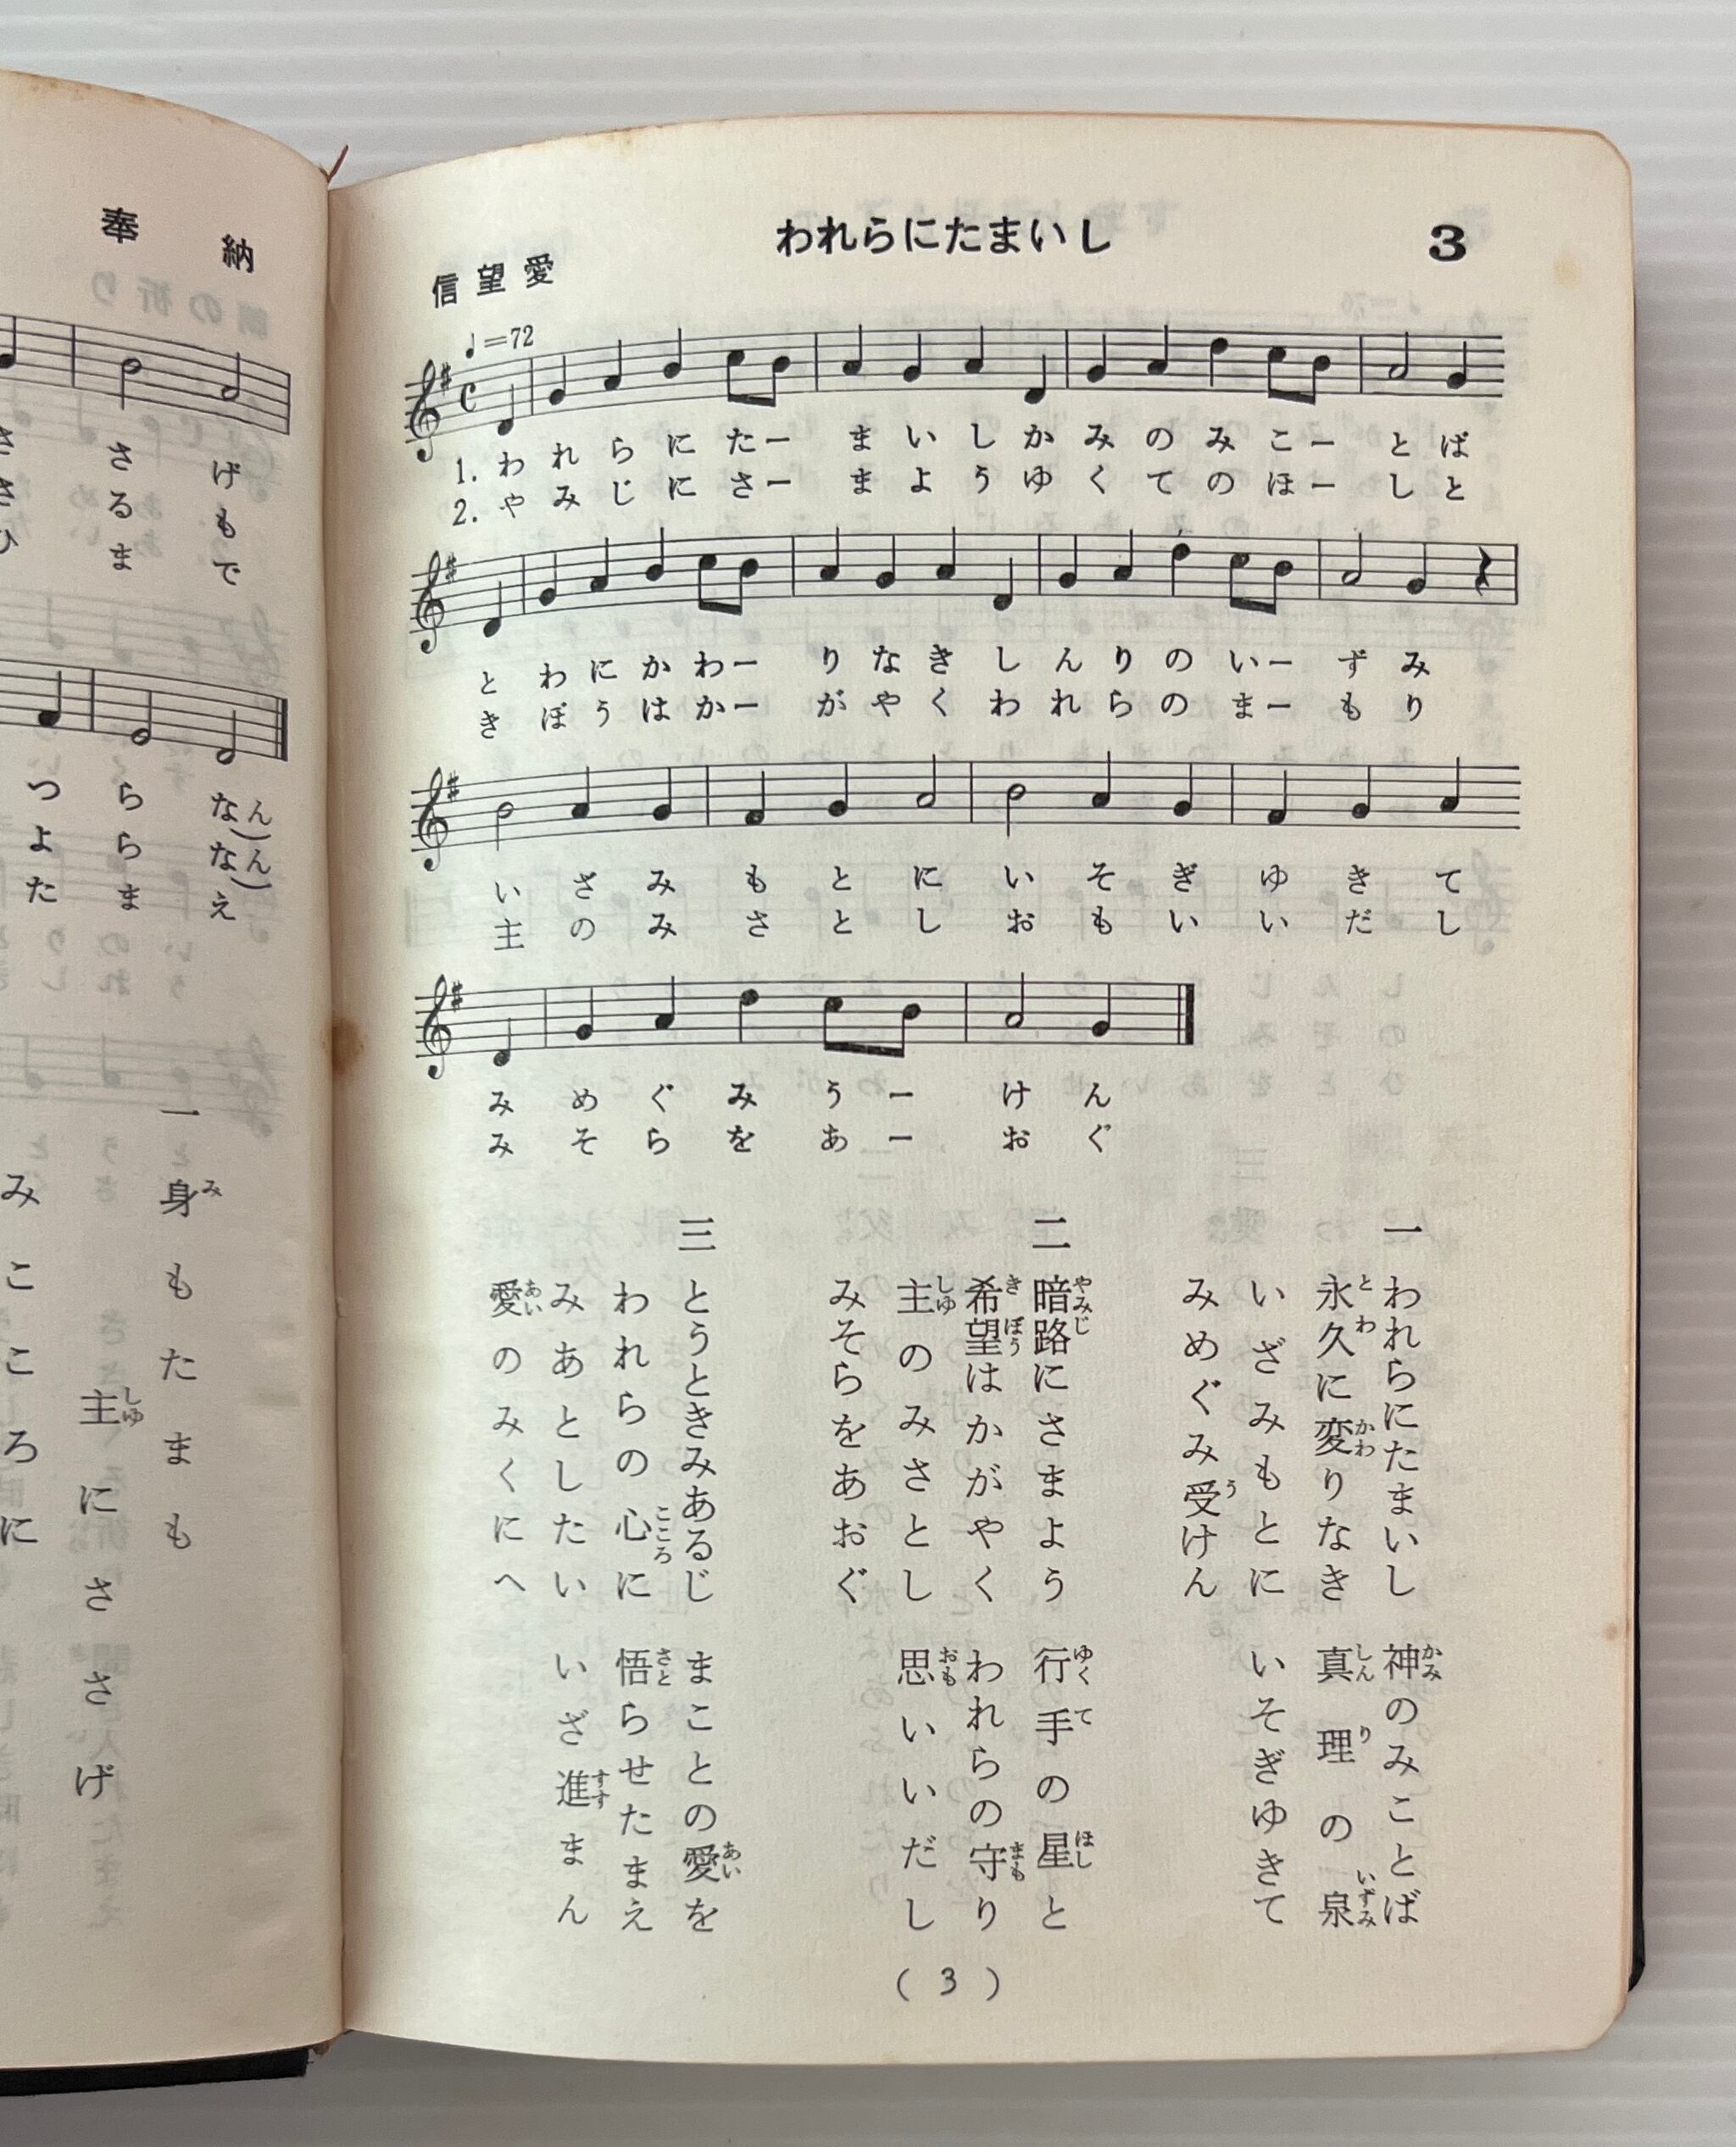 われらにたまいし
3
信望愛
♩=72
1. われらにたー まいしかみのみこー とば
2. やみじにさー まようゆくてのほー しと
とわにかわー りなきしんりのいー ずみ
きぼうはかー がやくわれらのまー もり
いざみもとにいそぎゆきて
主のみさとしおもいいだし
みめぐみうー けん
みそらをあー おぐ
一
われらにたまいし 神のみことば
永久に変りなき 真理の泉
いざみもとに いそぎゆきて
みめぐみ受けん
二
暗路にさまよう 行手の星と
希望はかがやく われらの守り
主のみさとし 思いいだし
みそらをあおぐ
三
とうときみあるじ まことの愛を
われらの心に 悟らせたまえ
みあとしたい いざ進まん
愛のみくにへ
( 3 )
奉納
さげ
さるも
ひまで
つらなん
よらなん
たまえ
一
身もたまも
主にささげ
みこころに